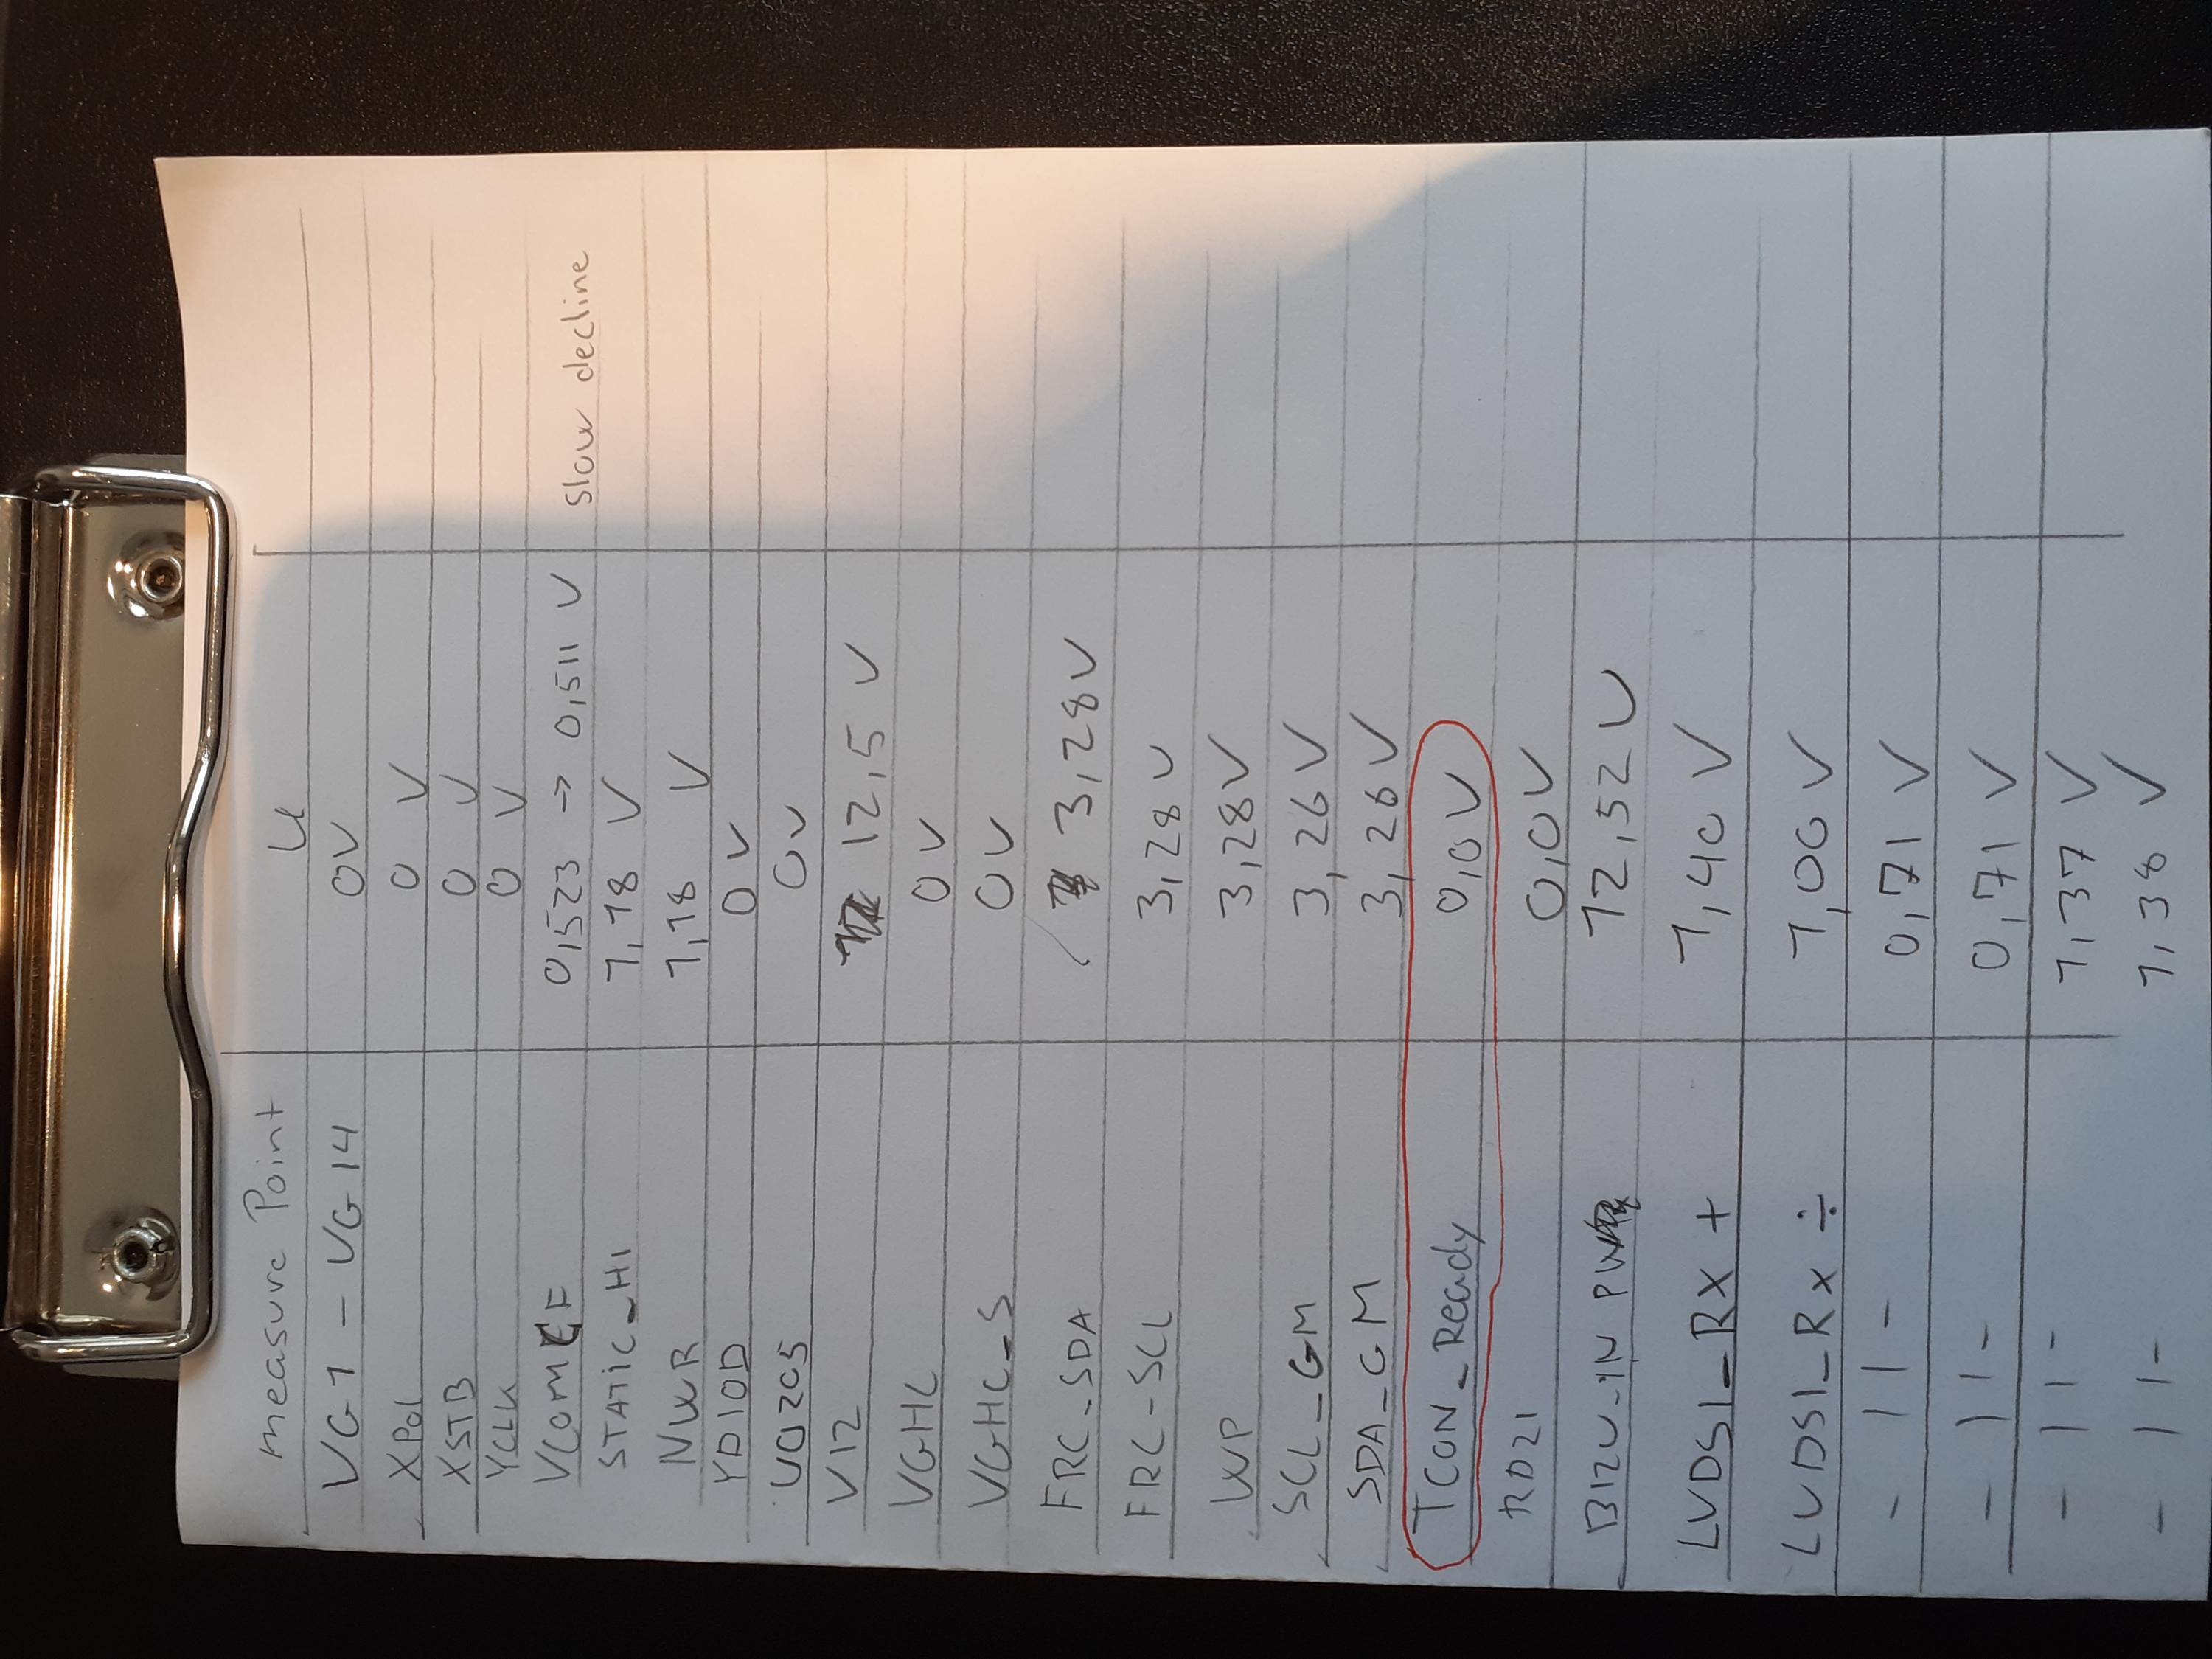 measure Point U
VG1 - VG14 0V
XPol 0 V
XSTB 0 V
YCLK 0 V
VCOM 0,523 → 0,511 V Slow decline
STATIC_HI 1,18 V
NWR 1,18 V
YDIOD 0 V
0V
V12 12,5 V
VGHC 0 V
VGHC_S 0V
FRC_SDA 3,28V
FRC-SCL 3,28 V
WP 3,28V
SCL_GM 3,26 V
SDA_GM 3,26 V
TCON_Ready 0,0V
RD21 0,0V
B12V-IN PW 12,52 V
LVDS1_RX + 1,40 V
LVDS1_Rx ÷ 1,00 V
- 11 - 0,71 V
- 11 - 0,71 V
- 11 - 1,37 V
- 11 - 1,38 V